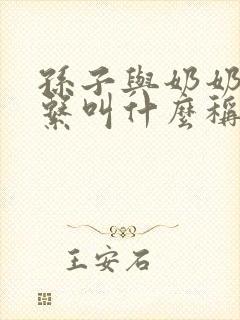 孫子與奶奶
繫叫什麼稱
王安石